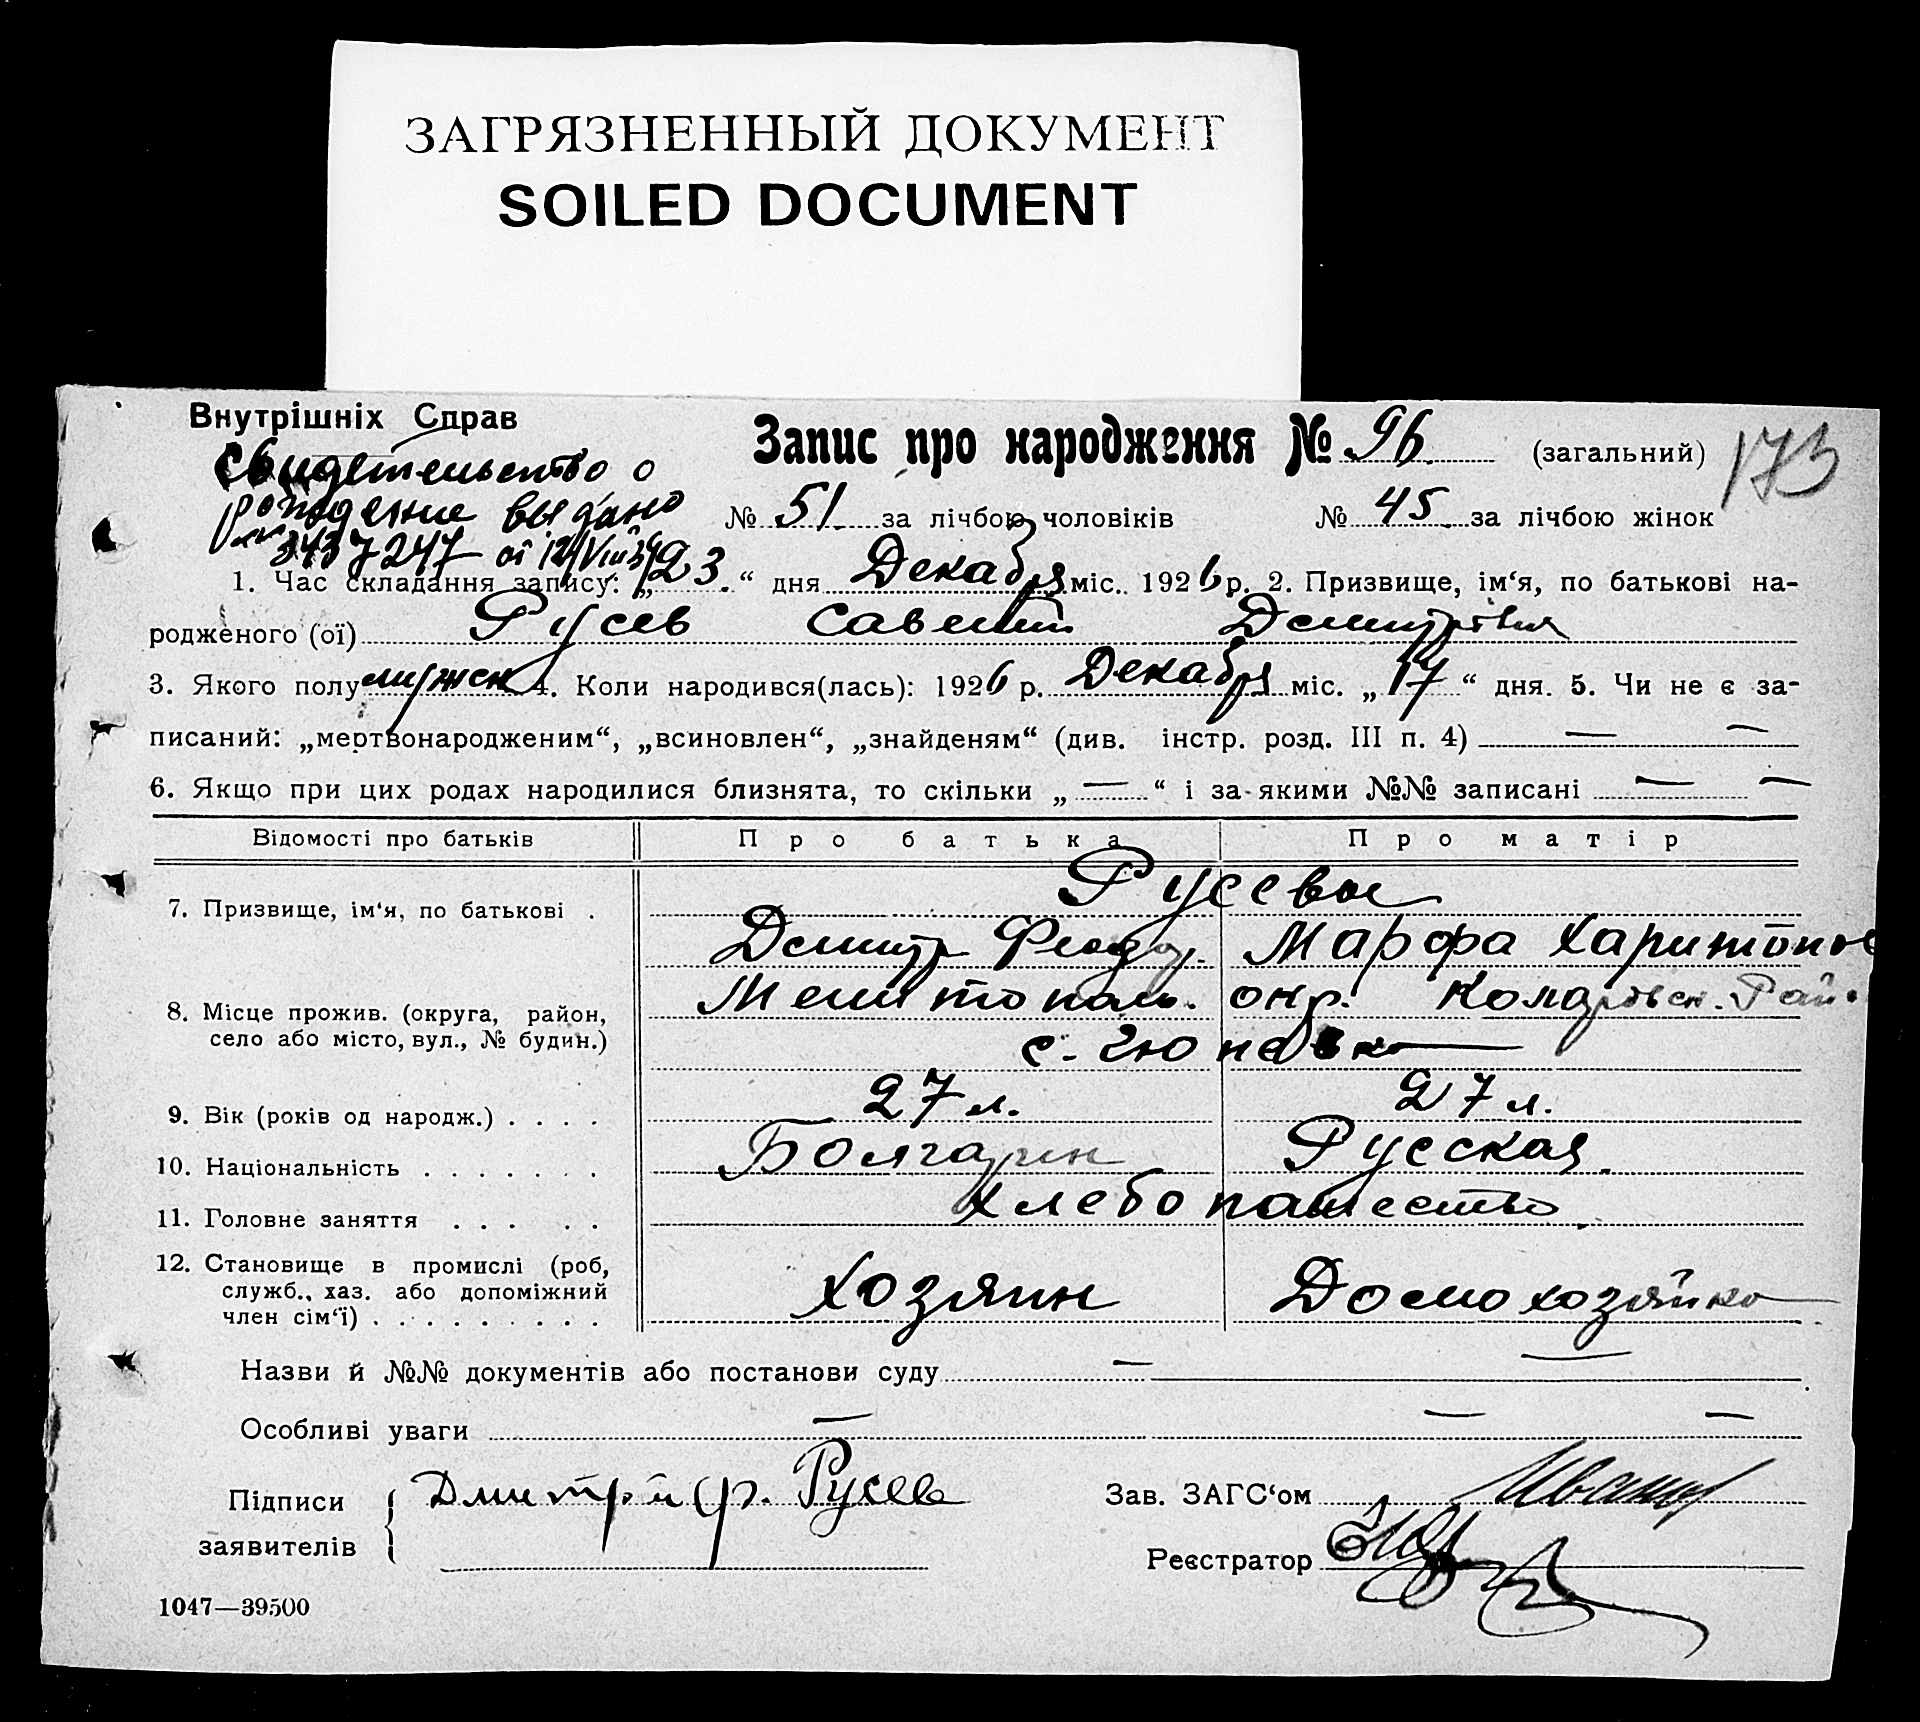 ЗАГРЯЗНЕННЫЙ ДОКУМЕНТ
SOILED DOCUMENT
Внутрішніх Справ
Запис про народження № 96 (загальний) 173
свидетельство о
рождение выдано
3437247 от
№ 51 за лічбою чоловіків № 45 за лічбою жінок
1. Час складання запису: „23“ дня Декабря міс. 1926 р. 2. Призвище, ім‘я, по батькові на-
родженого (ої) Русев Савелий
3. Якого полу мужск 4. Коли народився(лась): 1926 р. Декабря міс. „17“ дня. 5. Чи не є за-
писаний: „мертвонародженим“, „всиновлен“, „знайденям“ (див. інстр. розд. III п. 4) — —
6. Якщо при цих родах народилися близнята, то скільки „—“ і за якими №№ записані — —
Відомості про батьків Про батька Про матір
Русевы
7. Призвище, ім‘я, по батькові .
Дмитр Феод. Марфа Харитонов
8. Місце прожив. (округа, район, Мелитополь. окр. Коларовск. Рай.
село або місто, вул., № будин.) с. Гюневка
9. Вік (років од народж.) . . . . 27 л. 27 л.
10. Національність . . . . . . . Болгарин Русская
11. Головне заняття . . . . . Хлебопашество
12. Становище в промислі (роб,
служб., хаз. або допоміжний Хозяин Домохозяйка
член сім‘ї) . . . . . . . . .
Назви й №№ документів або постанови суду — —
Особливі уваги — — —
Підписи Дмитрий Ф. Русев Зав. ЗАГС‘ом
заявителів Реєстратор
1047—39500